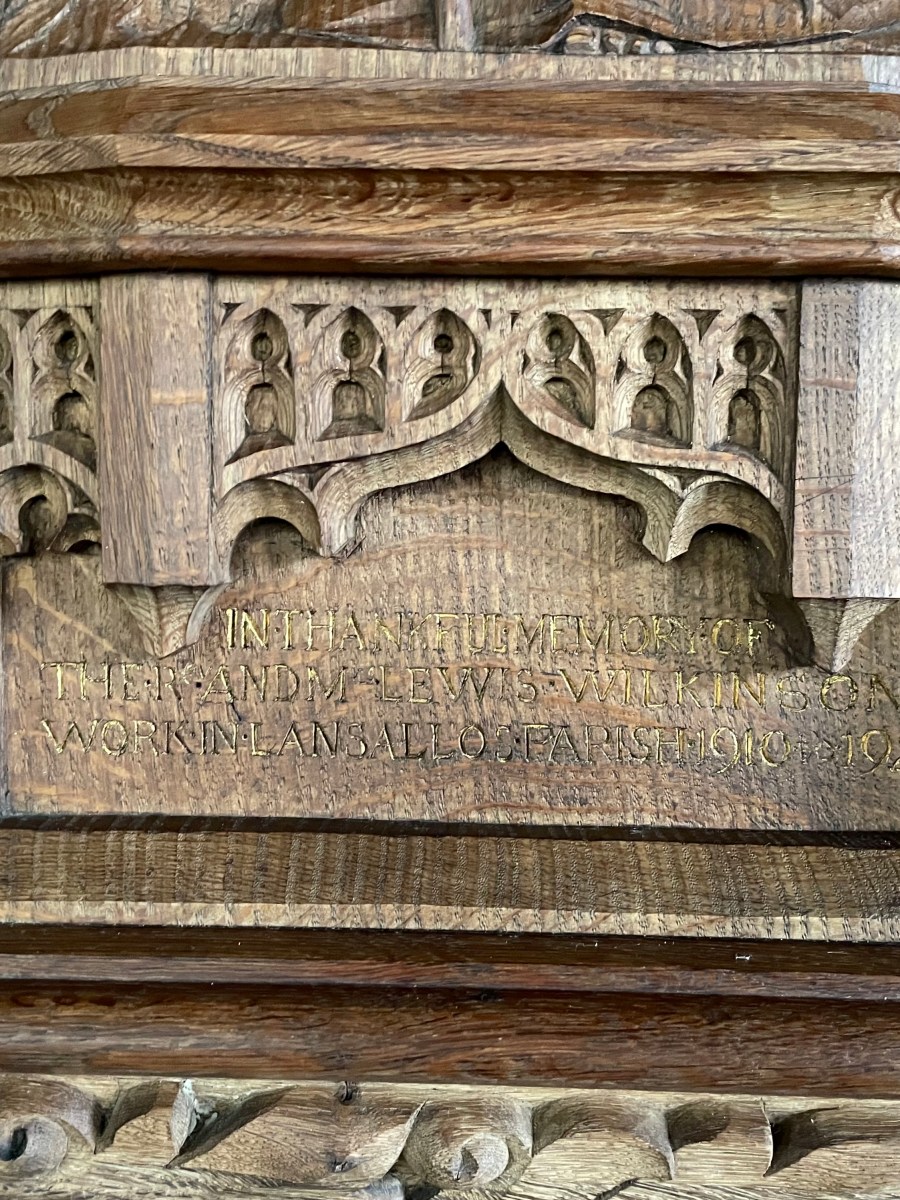 IN·THANKFUL·MEMORY·OF
THE·Rᵛ·AND Mʳˢ·LEWIS·WILKINSON
WORK·IN·LANSALLOS·PARISH·1910·to·19